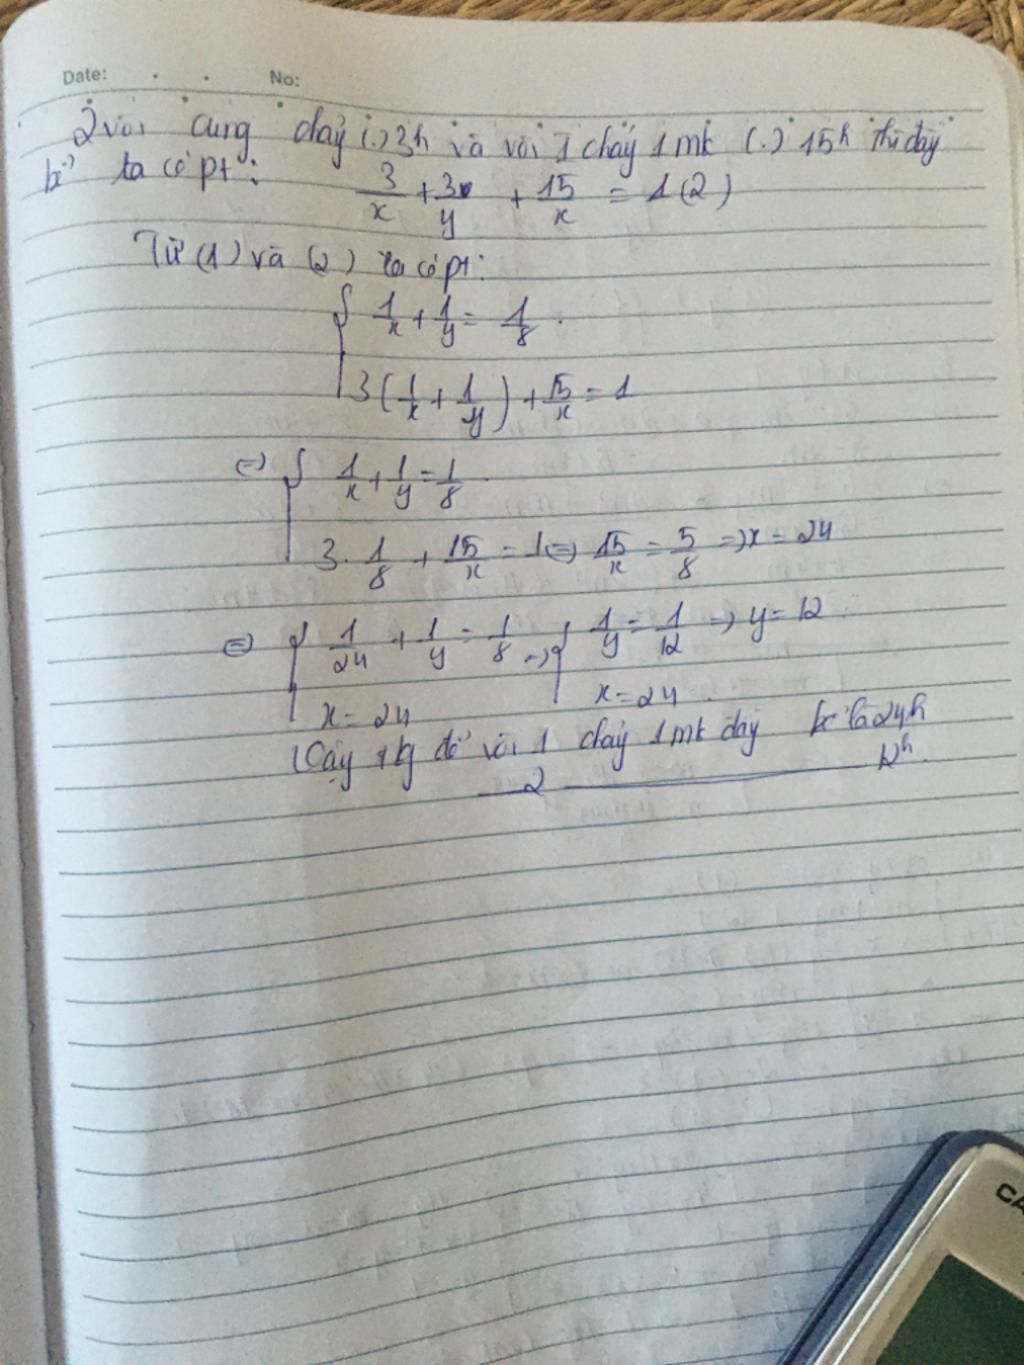 Date: . . No:
2 vòi cùng chảy (.) 3h và vòi 1 chảy 1mk (.) 15h thì đầy
bể ta có pt: 3/x + 3/y + 15/x = 1 (2)
Từ (1) và (2) ta có pt:
{ 1/x + 1/y = 1/8 .
3(1/x + 1/y) + 15/x = 1
(=) { 1/x + 1/y = 1/8 .
3. 1/8 + 15/x = 1 (=) 15/x = 5/8 =) x = 24
(=) { 1/24 + 1/y = 1/8 =) { 1/y = 1/12 =) y = 12 .
x = 24 x = 24 .
Vậy tg để vòi 1 chảy 1mk đầy bể là 24h
— 2 ———— 12h.
CA